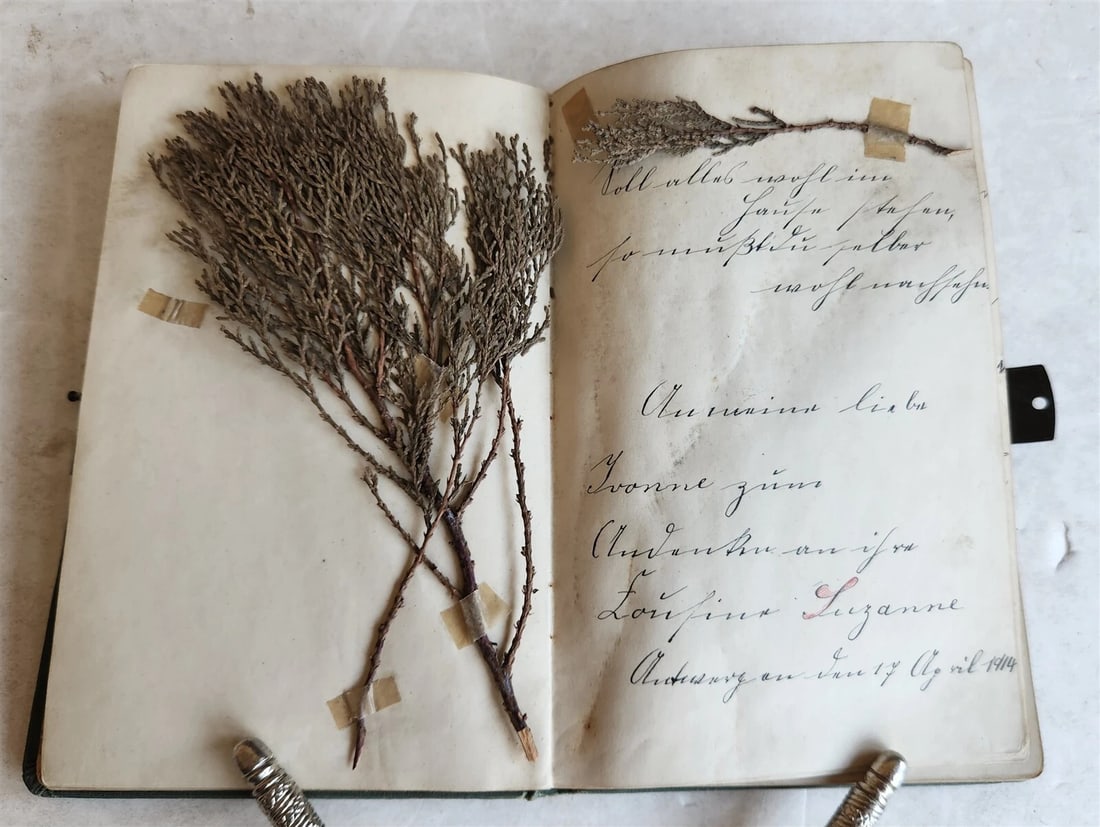 Soll alles wohl im
Hause stehen,
so mußt du selber
wohl nachsehn.
An meine liebe
Ivonne zum
Andenken an ihre
Cousine Suzanne
Antwerpen den 17 April 1914